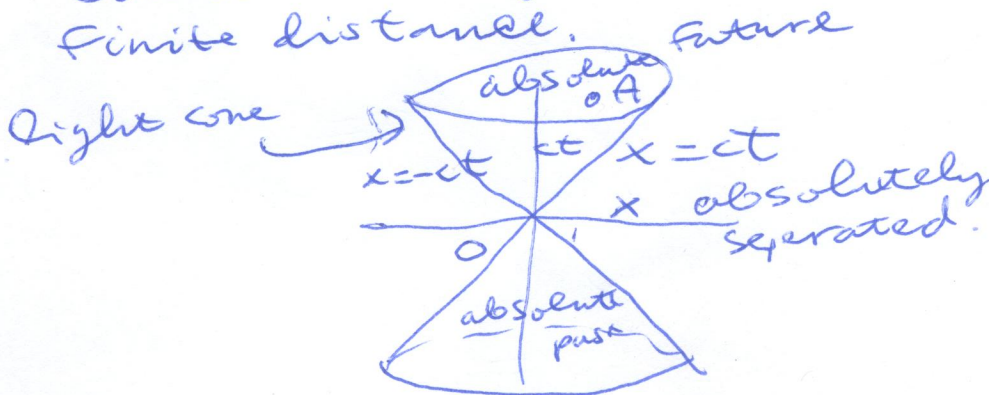 Finite distance.
Future
absolute
A
Light cone
ct
x=-ct
x = ct
x
absolutely
seperated.
O
absolute
past